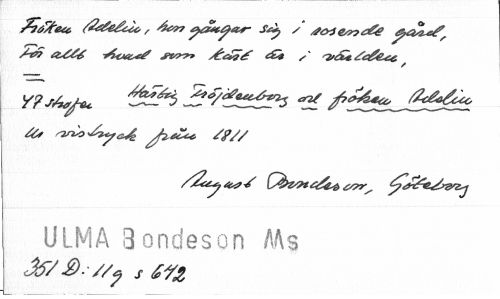 Fröken Adelin, hon gångar sig i rosende gård,
För allt hvad som kärt är i världen,
47 strofer Hertig Fröjdenborg och fröken Adelin
ur vistryck från 1811
August Bondeson, Göteborg
ULMA Bondeson Ms
351 D:11g s 642